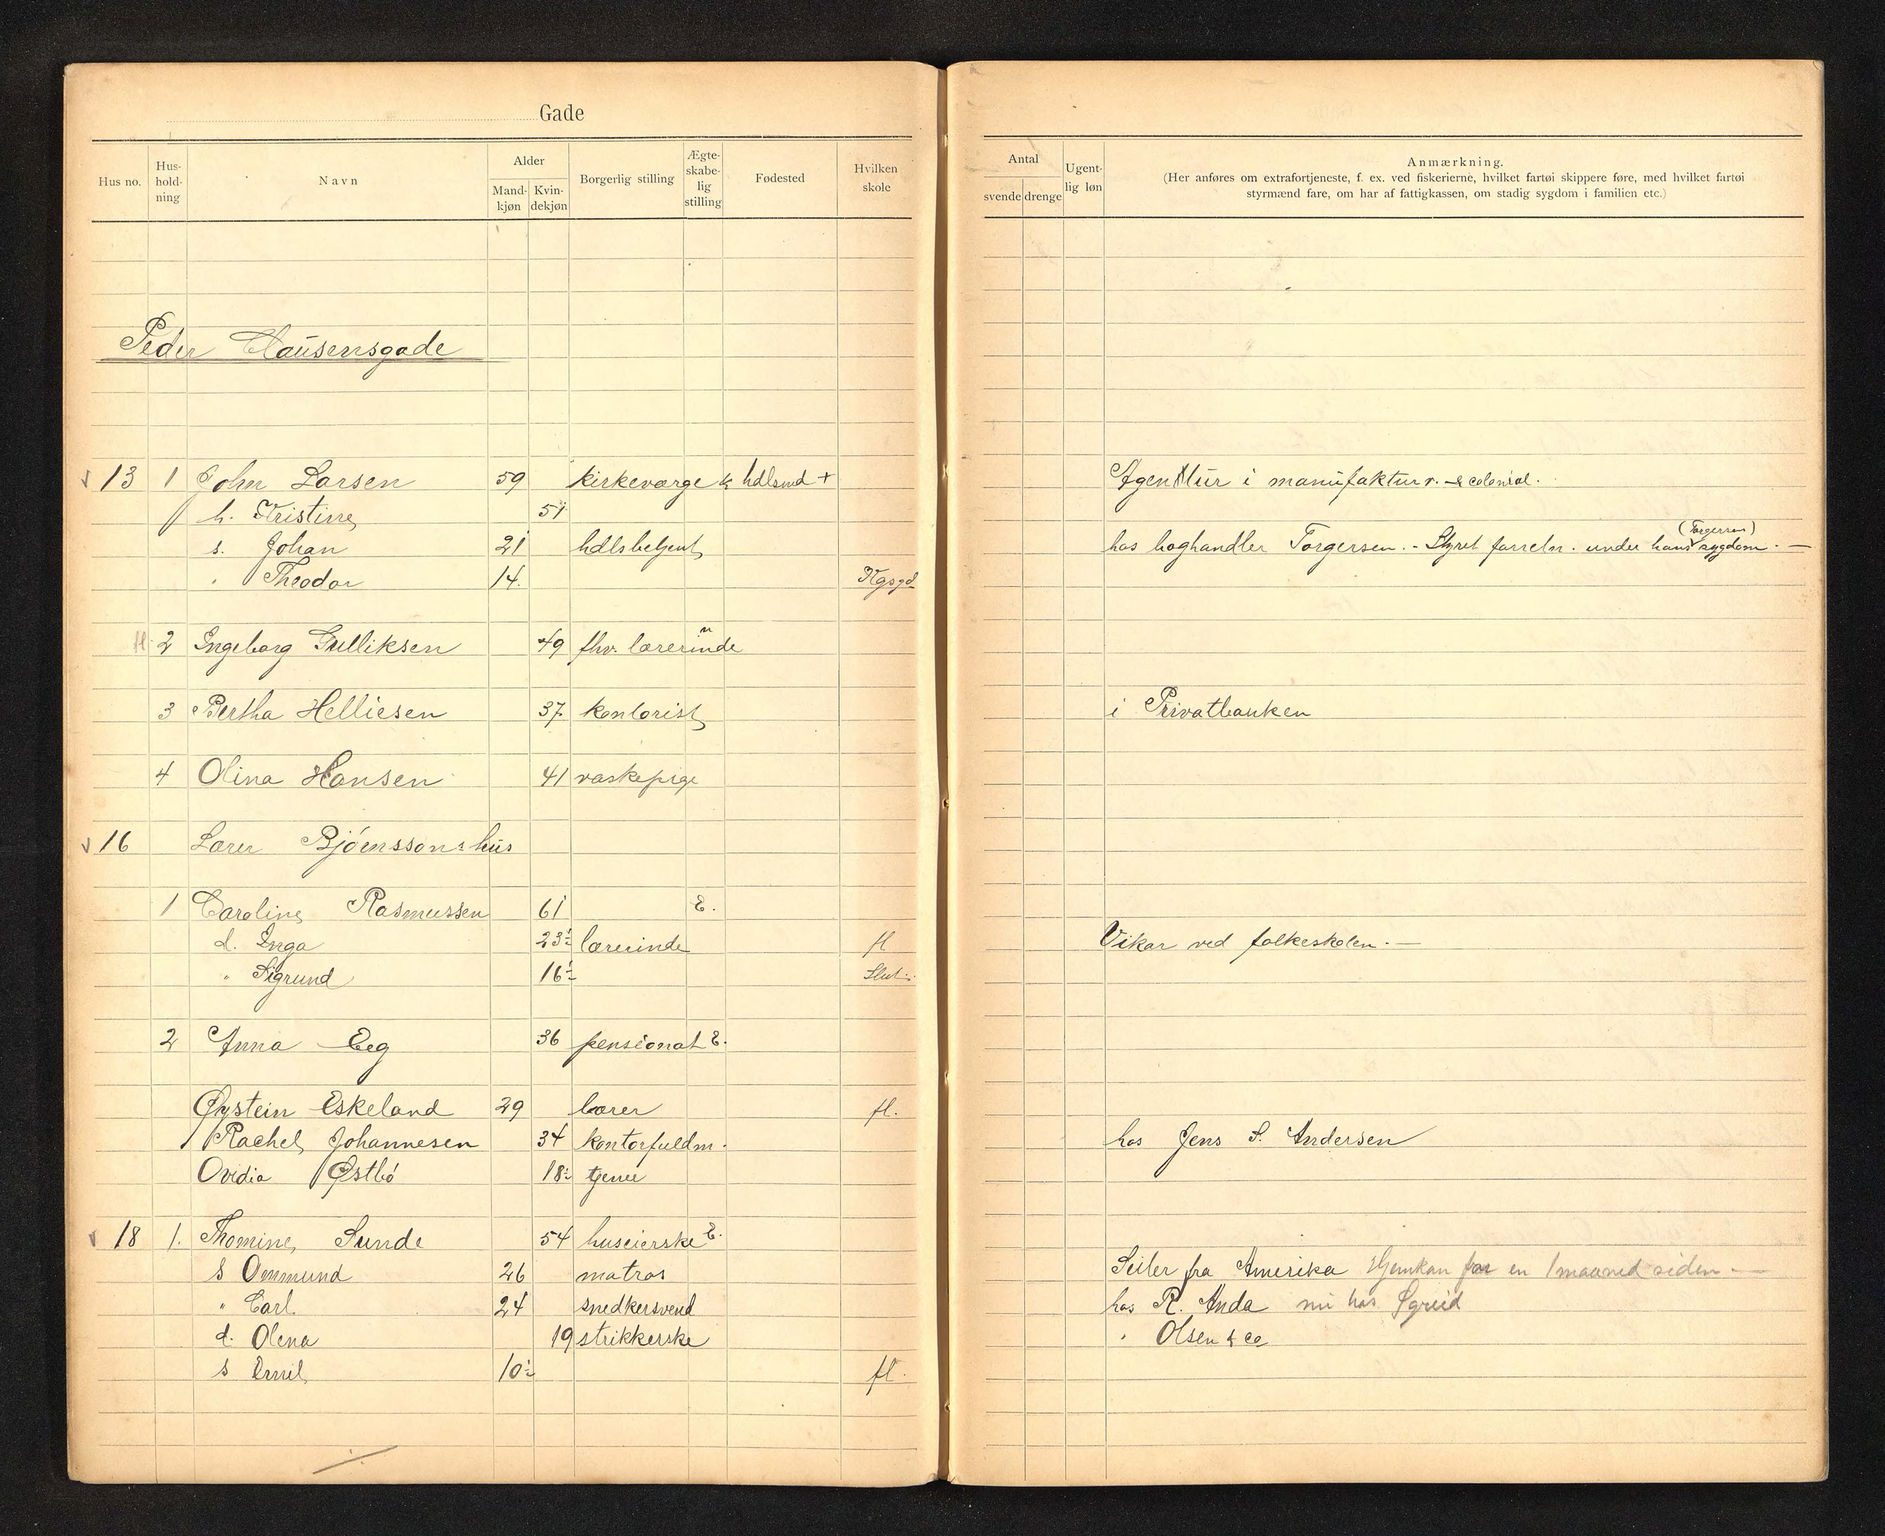 Gade
Hus no. Hus-hold-ning Navn Alder Mand-kjøn Kvin-dekjøn Borgerlig stilling Ægte-skabe-lig stilling Fødested Hvilken skole
Antal svende drenge Ugent-lig løn Anmærkning.
(Her anføres om extrafortjeneste, f. ex. ved fiskerierne, hvilket fartøi skippere føre, med hvilket fartøi
styrmænd fare, om har af fattigkassen, om stadig sygdom i familien etc.)
Peder Clausensgade
13 1 John Larsen 59 kirkeværge & hdlsmd + Agentur i manufaktur v. & colonial.
h. Kristine 51
s. Johan 21 hdlsbetjent hos boghandler Torgersen. - Styret forretn. under hans (Torgersen) sygdom. —
" Theodor 14. Kgsgd
fl. 2 Ingeborg Gulliksen 49 fhv. lærerinde
3 Bertha Helliesen 37 kontorist i Privatbanken
4 Olina Hansen 41 vaskepige
16 Lærer Bjørnssons hus
1 Caroline Rasmussen 61 E.
d. Inga 23½ lærerinde fl Vikar ved folkeskolen. —
" Sigrund 16½ Slut.
2 Anna Eeg 36 pensionat E.
Øystein Eskeland 29 lærer fl.
Rachel Johannesen 34 kontorfuldm. hos Jens S. Andersen
Ovidia Østbø 18½ tjener
18 1. Thomine Sunde 54 huseierske E.
s Ommund 26 matros Seiler fra Amerika Hjemkom for en 1 maaned siden. —
" Carl 24 snedkersvend hos R. Anda nu hos Øgreid
d. Olena 19 strikkerske " Olsen & co
s Emil 10½ fl.